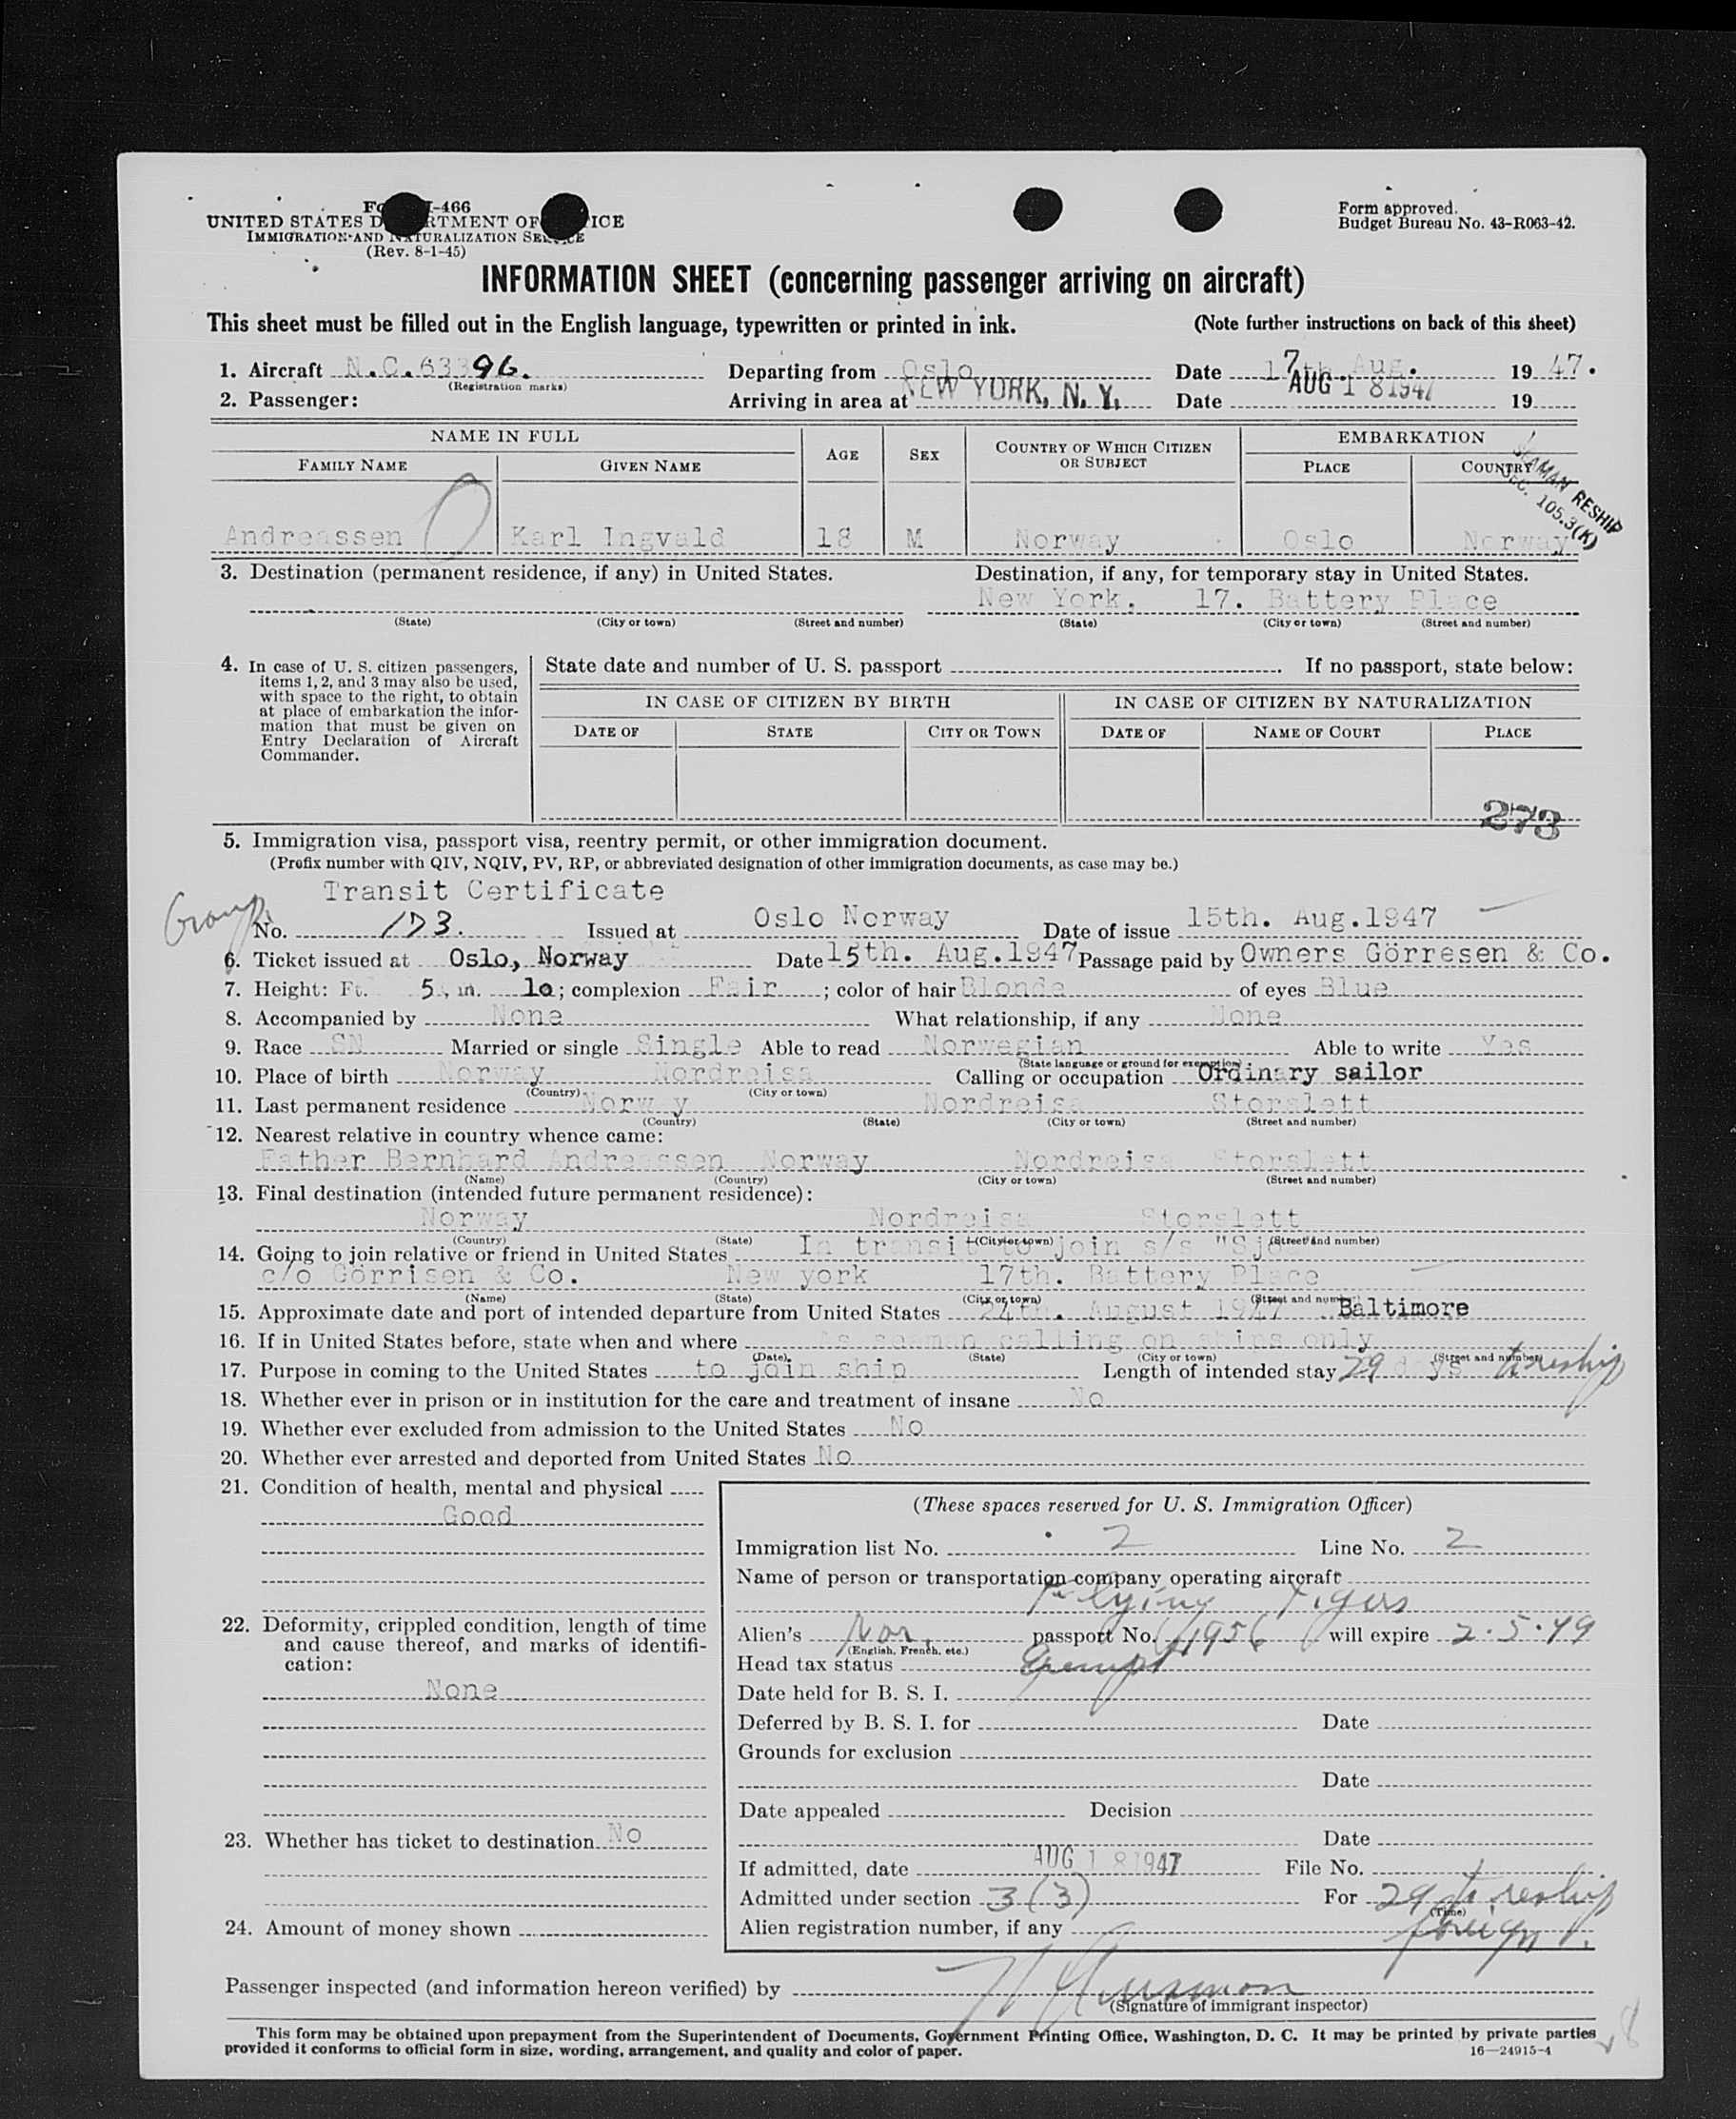 Form I-466
UNITED STATES DEPARTMENT OF JUSTICE
IMMIGRATION AND NATURALIZATION SERVICE
(Rev. 8-1-45)
Form approved.
Budget Bureau No. 43-R063-42.
INFORMATION SHEET (concerning passenger arriving on aircraft)
This sheet must be filled out in the English language, typewritten or printed in ink. (Note further instructions on back of this sheet)
1. Aircraft N.C.63396. Departing from Oslo Date 17th Aug. 1947.
(Registration marks)
2. Passenger: Arriving in area at NEW YORK, N. Y. Date AUG 18 1947 19
NAME IN FULL AGE SEX COUNTRY OF WHICH CITIZEN OR SUBJECT EMBARKATION
FAMILY NAME GIVEN NAME PLACE COUNTRY
SEAMAN RESHIP
SEC. 105.3(K)
Andreassen Karl Ingvald 18 M Norway Oslo Norway
3. Destination (permanent residence, if any) in United States. Destination, if any, for temporary stay in United States.
New York. 17. Battery Place
(State) (City or town) (Street and number) (State) (City or town) (Street and number)
4. In case of U. S. citizen passengers, items 1, 2, and 3 may also be used, with space to the right, to obtain at place of embarkation the information that must be given on Entry Declaration of Aircraft Commander.
State date and number of U. S. passport . If no passport, state below:
IN CASE OF CITIZEN BY BIRTH IN CASE OF CITIZEN BY NATURALIZATION
DATE OF STATE CITY OR TOWN DATE OF NAME OF COURT PLACE
273
5. Immigration visa, passport visa, reentry permit, or other immigration document.
(Prefix number with QIV, NQIV, PV, RP, or abbreviated designation of other immigration documents, as case may be.)
Transit Certificate
Group No. 173. Issued at Oslo Norway Date of issue 15th. Aug.1947
6. Ticket issued at Oslo, Norway Date 15th. Aug.1947 Passage paid by Owners Görresen & Co.
7. Height: Ft. 5, in. 10; complexion Fair; color of hair Blonde of eyes Blue
8. Accompanied by None What relationship, if any None
9. Race SN Married or single Single Able to read Norwegian Able to write Yes
(State language or ground for exemption)
10. Place of birth Norway Nordreisa Calling or occupation Ordinary sailor
(Country) (City or town)
11. Last permanent residence Norway Nordreisa Storslett
(Country) (State) (City or town) (Street and number)
12. Nearest relative in country whence came:
Father Bernhard Andreassen Norway Nordreisa Storslett
(Name) (Country) (City or town) (Street and number)
13. Final destination (intended future permanent residence):
Norway Nordreisa Storslett
(Country) (State) (City or town) (Street and number)
14. Going to join relative or friend in United States In transit to join s/s
c/o Görrisen & Co. New york 17th. Battery Place
(Name) (State) (City or town) (Street and number)
15. Approximate date and port of intended departure from United States 24th. August 1947 Baltimore
16. If in United States before, state when and where As seaman calling on ships only
(Date) (State) (City or town) (Street and number)
17. Purpose in coming to the United States to join ship Length of intended stay 29 days to reship
18. Whether ever in prison or in institution for the care and treatment of insane No
19. Whether ever excluded from admission to the United States No
20. Whether ever arrested and deported from United States No
21. Condition of health, mental and physical
Good
22. Deformity, crippled condition, length of time and cause thereof, and marks of identification:
None
23. Whether has ticket to destination No
24. Amount of money shown
(These spaces reserved for U. S. Immigration Officer)
Immigration list No. 2 Line No. 2
Name of person or transportation company operating aircraft
Flying Tigers
Alien's Nor. passport No. will expire 2-5-49
(English, French, etc.)
Head tax status Exempt
Date held for B. S. I.
Deferred by B. S. I. for Date
Grounds for exclusion
Date
Date appealed Decision
Date
If admitted, date AUG 18 1947 File No.
Admitted under section 3(3) For 29 to reship
(Time)
Alien registration number, if any foreign
Passenger inspected (and information hereon verified) by
(Signature of immigrant inspector)
This form may be obtained upon prepayment from the Superintendent of Documents, Government Printing Office, Washington, D. C. It may be printed by private parties
provided it conforms to official form in size, wording, arrangement, and quality and color of paper. 16—24915-4